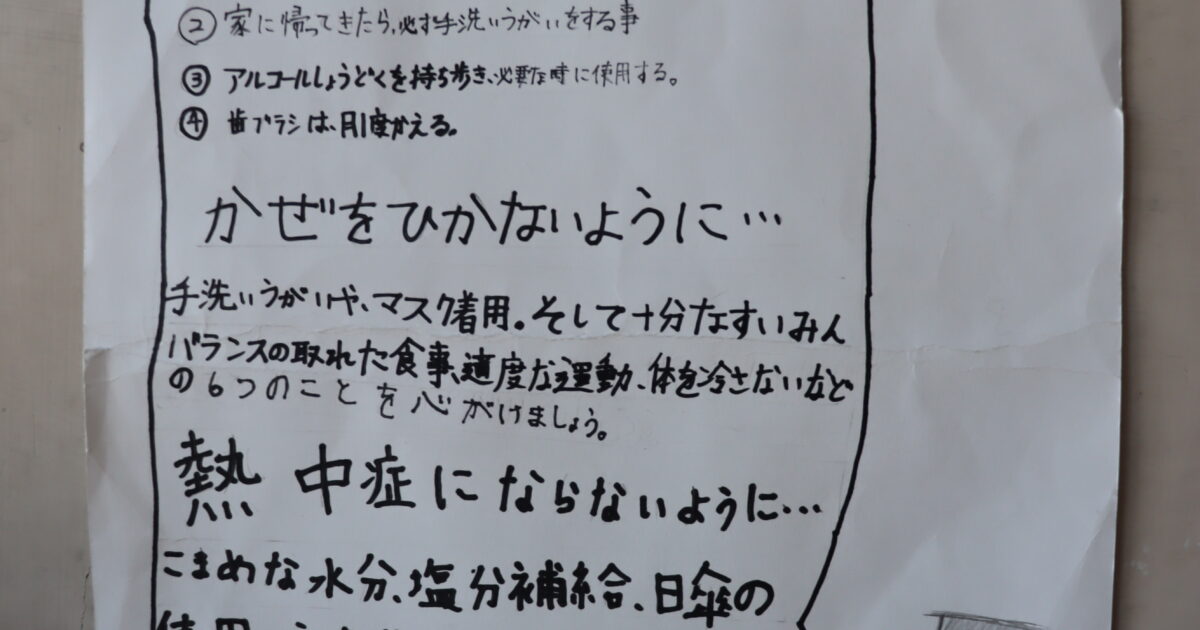 ② 家に帰ってきたら、必ず手洗いうがいをする事
③ アルコールしょうどくを持ち歩き、必要な時に使用する。
④ 歯ブラシは、月1度かえる。
かぜをひかないように…
手洗いうがいや、マスク着用。そして十分なすいみん
バランスの取れた食事、適度な運動、体を冷さないなど
の6つのことを心がけましょう。
熱中症にならないように…
こまめな水分、塩分補給、日傘の
使用